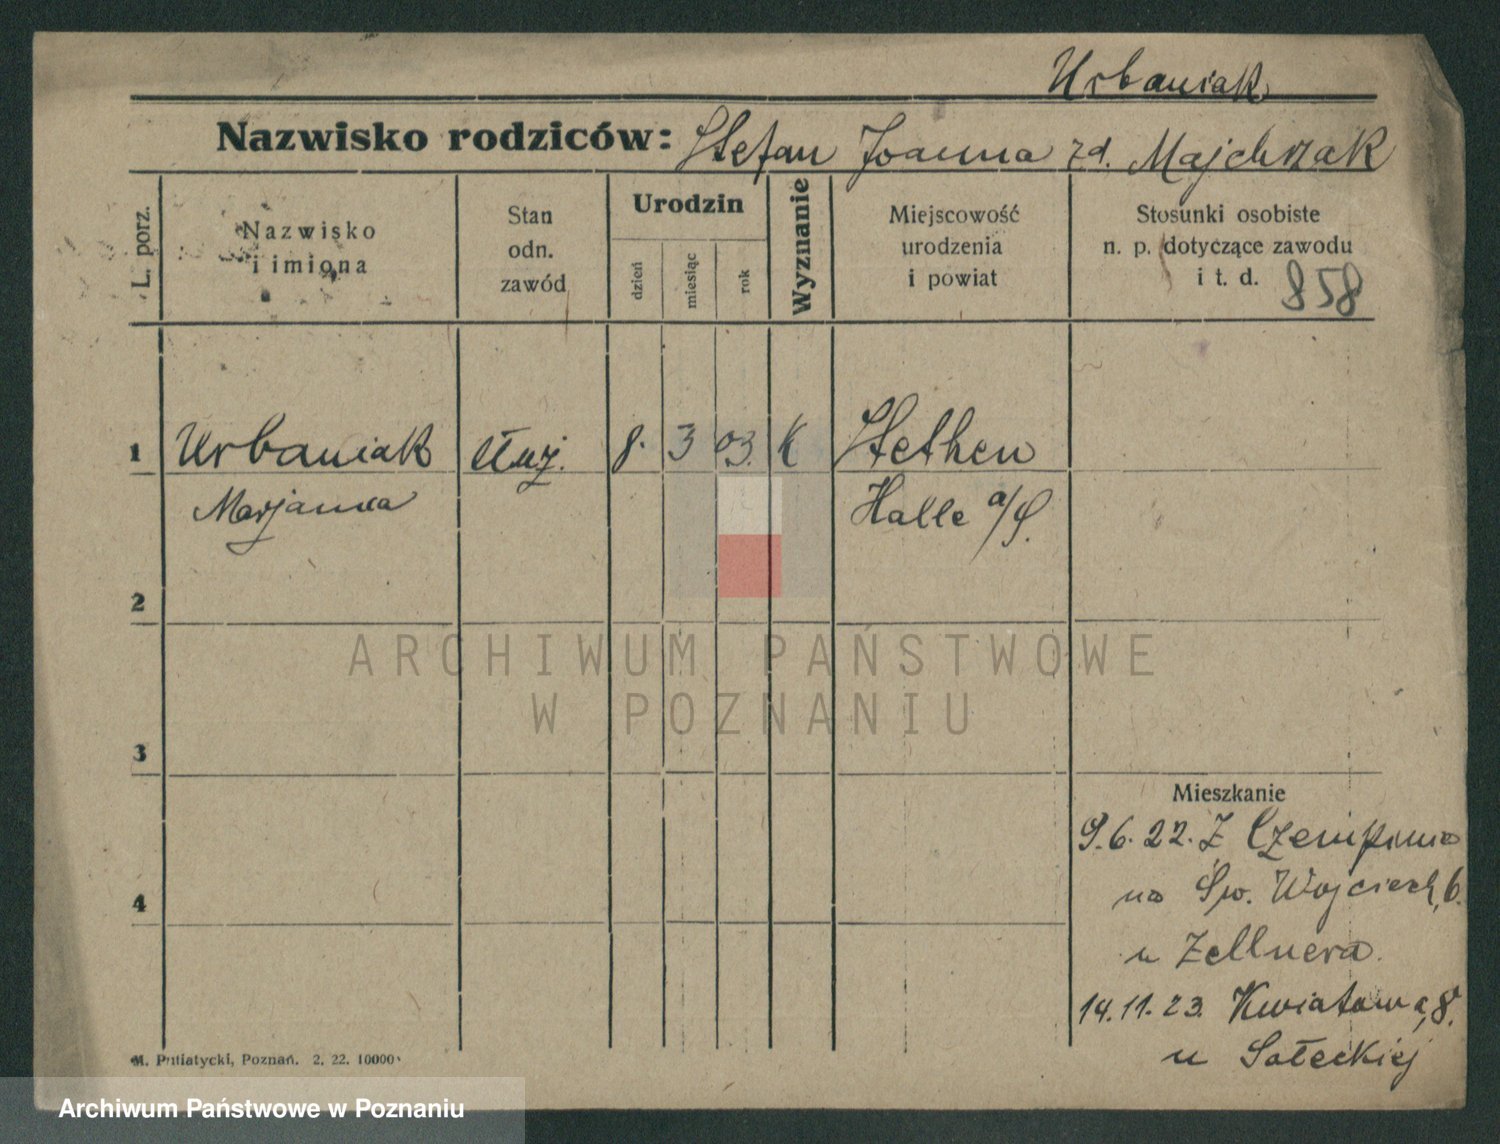 Urbaniak
Nazwisko rodziców: Stefan Joanna zd. Majchrzak
L. porz.
Nazwisko
i imiona
Stan
odn.
zawód
Urodzin
dzień
miesiąc
rok
Wyznanie
Miejscowość
urodzenia
i powiat
Stosunki osobiste
n. p. dotyczące zawodu
i t. d.
858
1 Urbaniak służ. 8. 3 03. K Stethen
Marjanna Halle a/S.
2
ARCHIWUM PAŃSTWOWE
W POZNANIU
3
Mieszkanie
9.6.22. Z Czempinia
na Św. Wojciech, 6.
4
u Zellnera.
14.11.23. Kwiatowa, 8.
u Sołeckiej
M. Putiatycki, Poznań. 2. 22. 10000
Archiwum Państwowe w Poznaniu